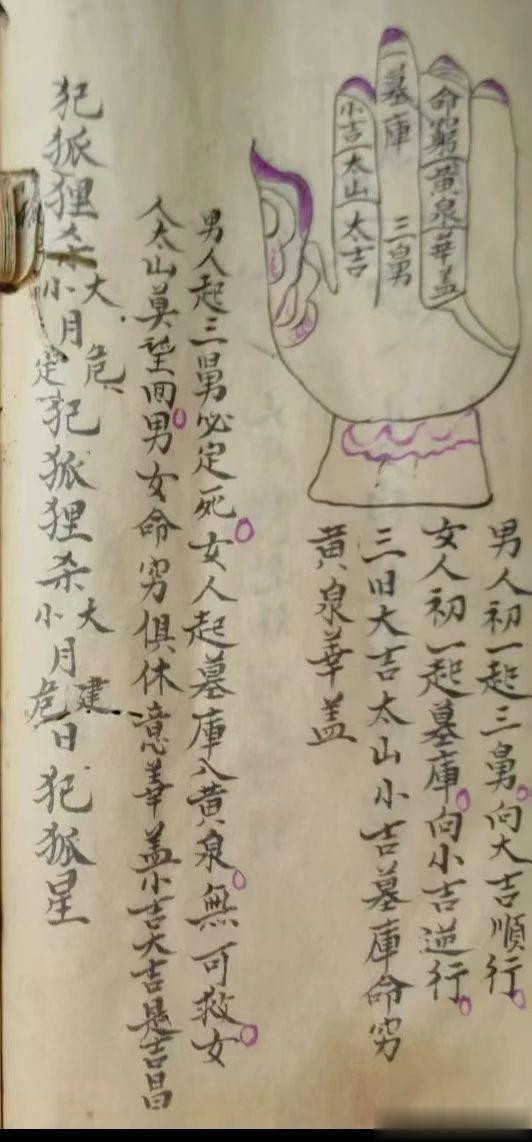 小吉
太山
太吉
一墓庫
三舅
命窮
黃泉
華盖
男人初一起三舅向大吉順行
女人初一起墓庫向小吉逆行
三旧大吉太山小吉墓庫命穷
黃泉華盖
男人起三舅必定死女人起墓庫八黃泉無可救女
人太山莫望回男女命穷俱休意華盖小吉大吉是吉昌
犯狐狸杀大小月危定犯狐狸杀大小月建危日犯狐星